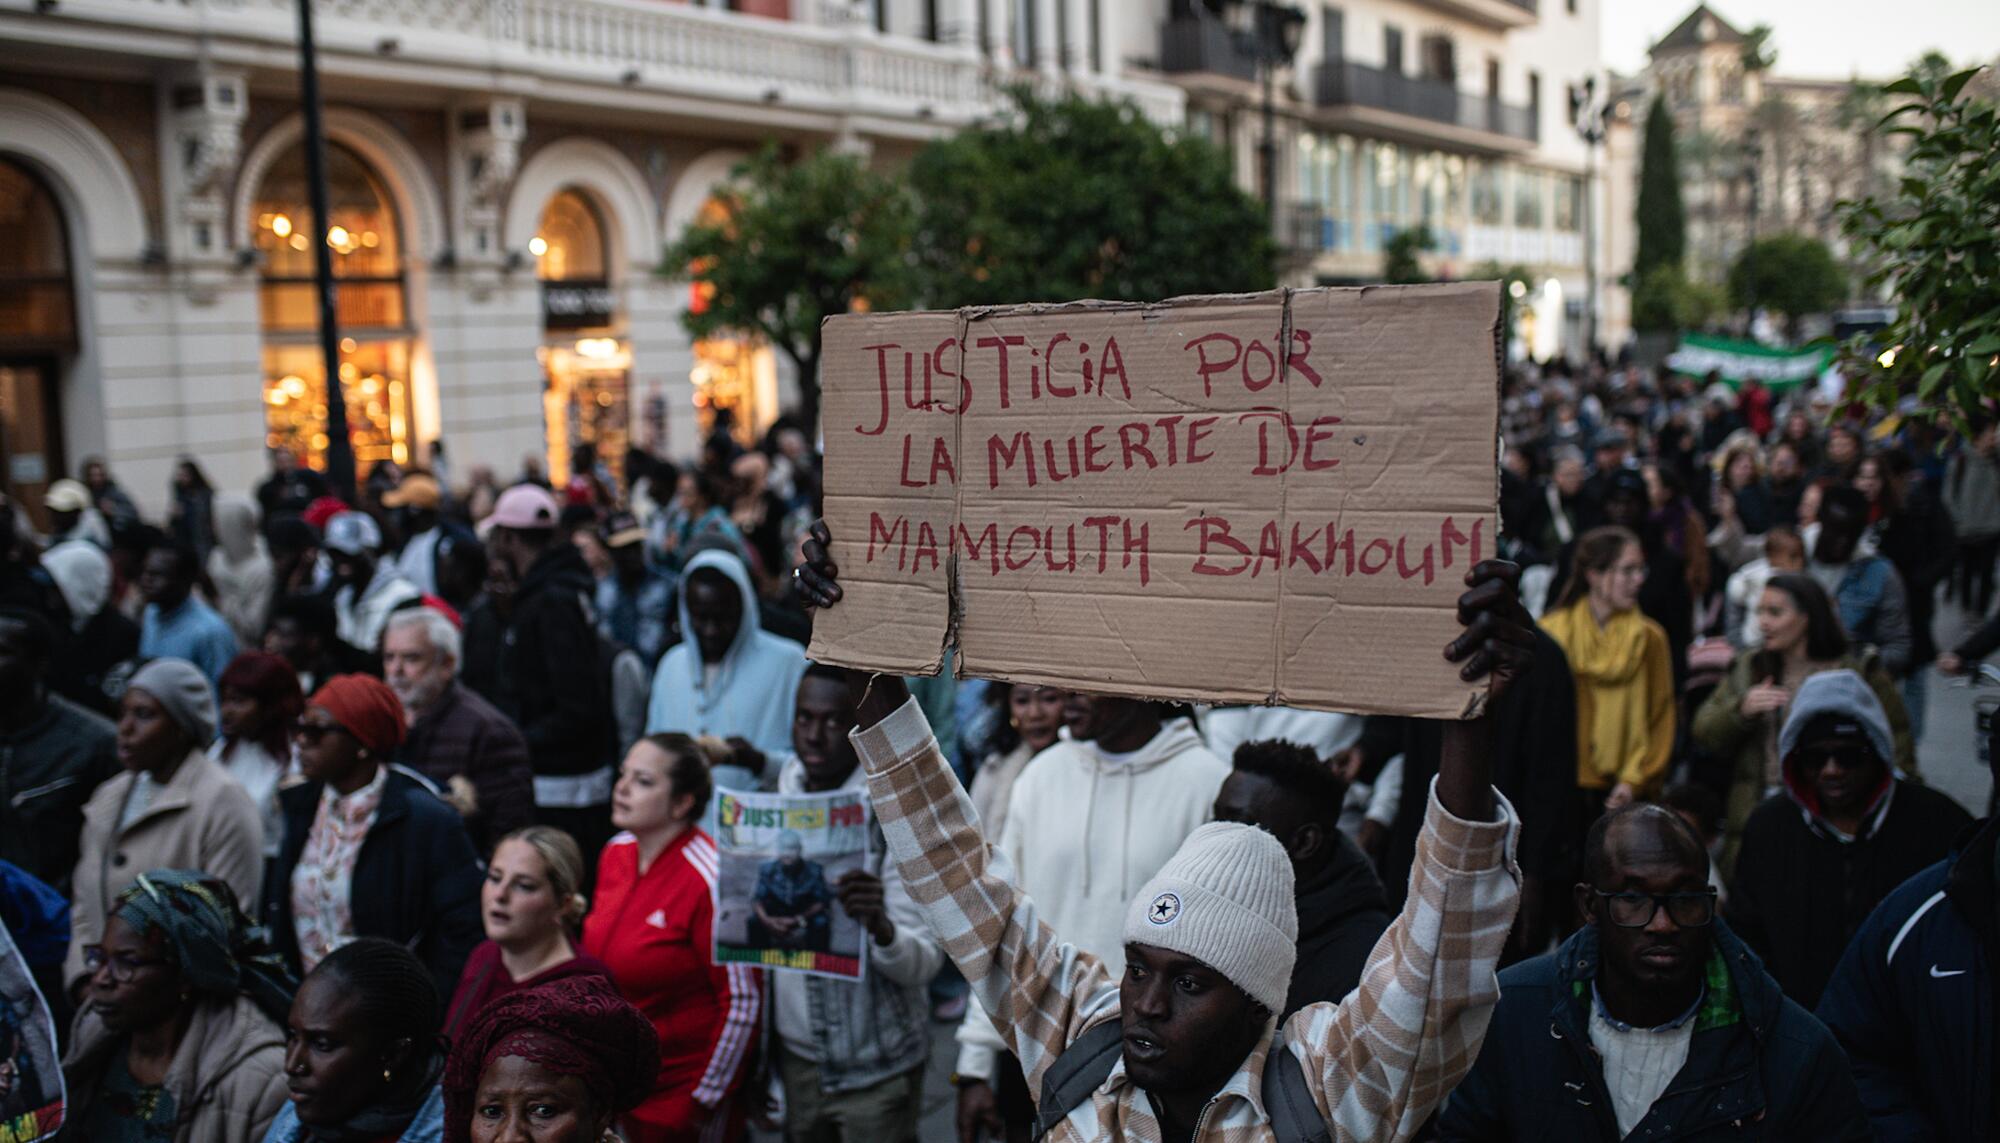 JUSTICIA POR
LA MUERTE DE
MAMOUTH BAKHOUM
JUSTICIA POR